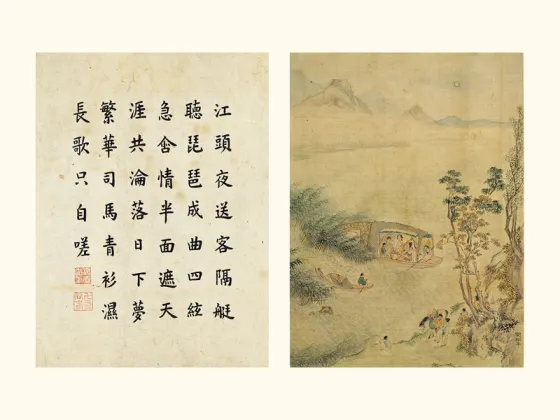 江頭夜送客隔艇
聽琵琶成曲四絃
急含情半面遮天
涯共淪落日下夢
繁華司馬青衫濕
長歌只自嗟